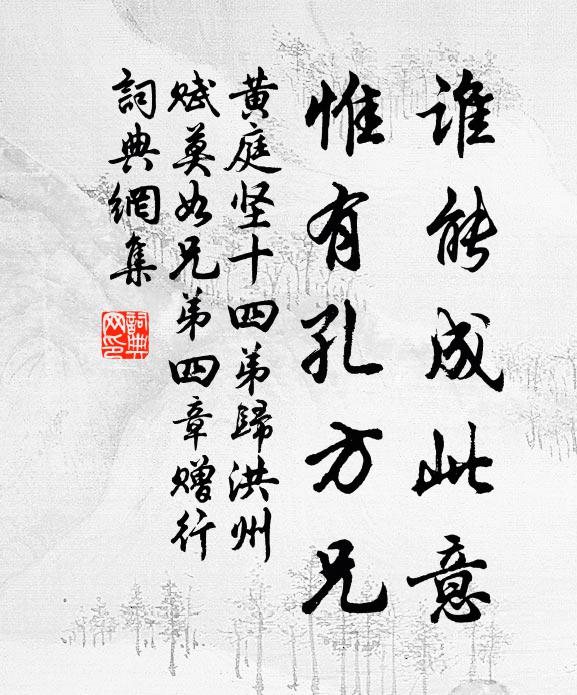 谁能成此意
惟有孔方兄
黄庭坚十四弟歸洪州
赋莫如兄弟四章赠行
詞典網集
詞典
网印